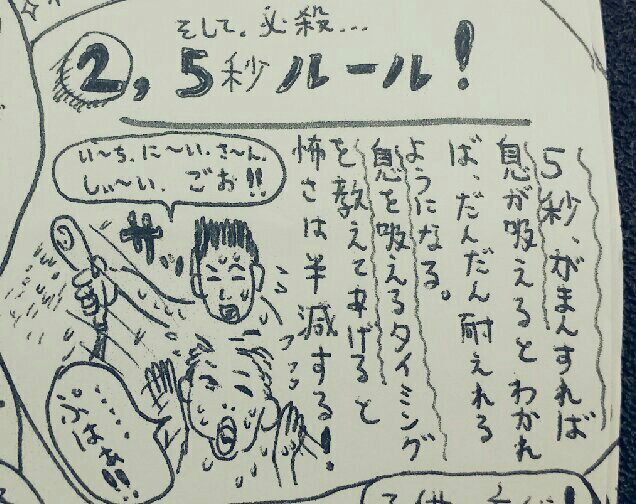 そして、必殺…
2, 5秒ルール!
5秒、がまんすれば
息が吸えるとわかれ
ば、だんだん耐えれる
ようになる。
息を吸えるタイミング
を教えてあげると
怖さは半減する!
い〜ち、に〜い、さ〜ん、
しぃ〜い、ごお!!
サッ
……
ぷはな!!